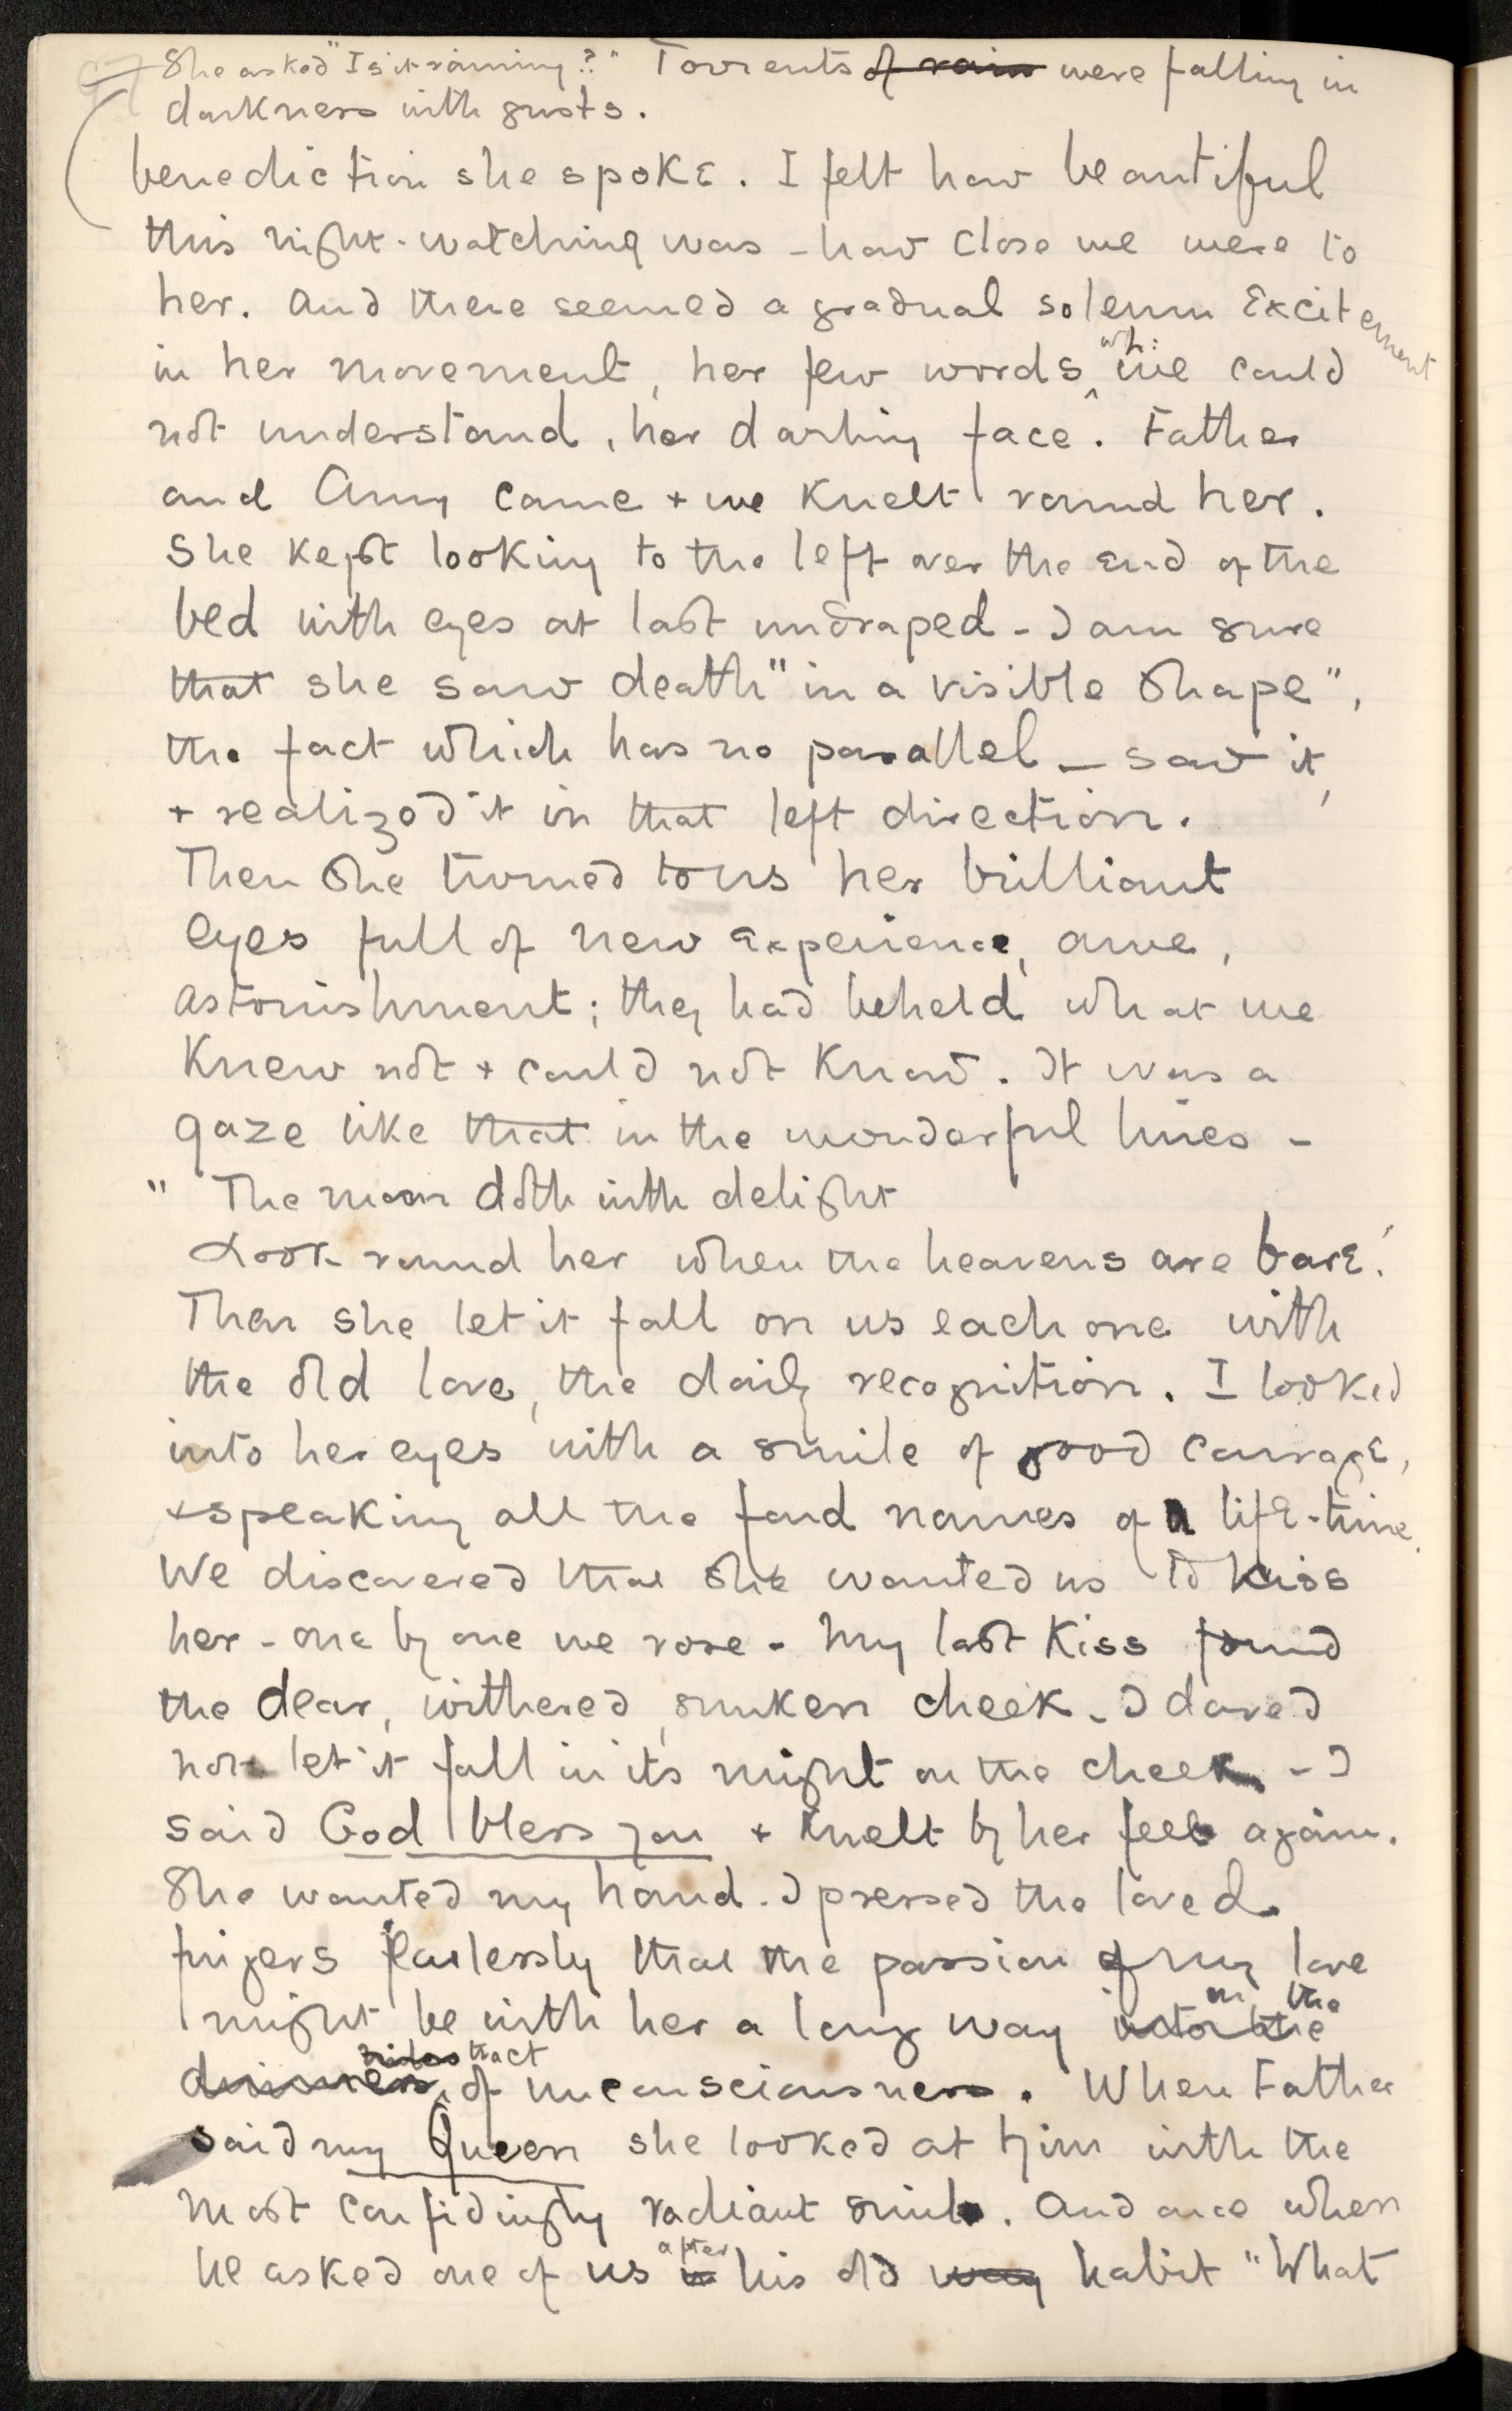 97
She asked "Is it raining?" Torrents of rain were falling in
darkness with gusts.
benediction she spoke. I felt how beautiful
this night-watching was - how close we were to
her. And there seemed a gradual solemn excitement
in her movement, her few words wh: we could
not understand, her darling face. Father
and Amy came + we knelt round her.
She kept looking to the left over the end of the
bed with eyes at last undraped - I am sure
that she saw death "in a visible shape",
the fact which has no parallel - saw it,
+ realized it in that left direction.
Then she turned to us her brilliant
eyes full of new experience, awe,
astonishment; they had beheld what we
knew not + could not know. It was a
gaze like that in the wonderful lines -
" The moon doth with delight
Look round her when the heavens are bare."
Then she let it fall on us each one with
the old love, the daily recognition. I looked
into her eyes with a smile of good courage,
+ speaking all the fond names of a life-time.
We discovered that she wanted us to kiss
her - one by one we rose - My last kiss found
the dear, withered, sunken cheek - I dared
not let it fall in its might on the cheek - I
said God bless you + knelt by her feet again.
She wanted my hand. I pressed the loved
fingers fearlessly that the passion of my love
might be with her a long way into the on the
tract of unconsciousness. When Father
said my Queen she looked at him with the
most confidingly radiant smile. And once when
he asked one of us in after his old way habit "What